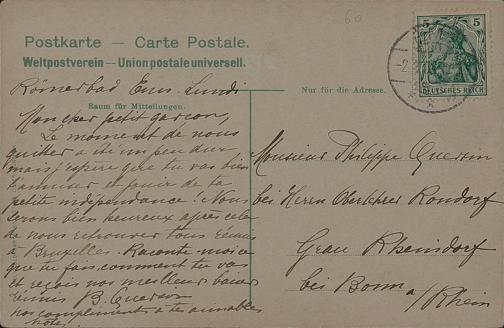 60
Postkarte — Carte Postale.
Weltpostverein — Union postale universell.
5 5
DEUTSCHES REICH
Nur für die Adresse.
Raum für Mitteilungen.
Römerbad Ems. Lundi
Mon cher petit garçon,
Le moment de nous
quitter a été un peu dur,
mais j'espère que tu vas bien
t'amuser et jouir de ta
petite indépendance! Nous
serons bien heureux après cela
de nous retrouver tous réunis
à Bruxelles. Raconte moi ce
que tu fais, comment tu vas
et reçois nos meilleurs baisers
réunis B.
nos compliments à tes aimables
hôtes!
Monsieur Philippe
bei Herrn Oberlehrer Rondorf
Grau Rheindorf
bei Bonn a/Rhein